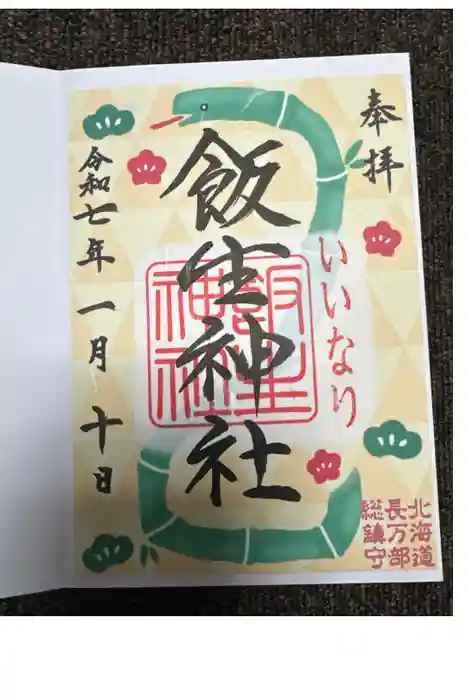 奉拝
いいなり
飯生神社
飯生神社
令和七年一月十日
北海道
長万部
総鎮守